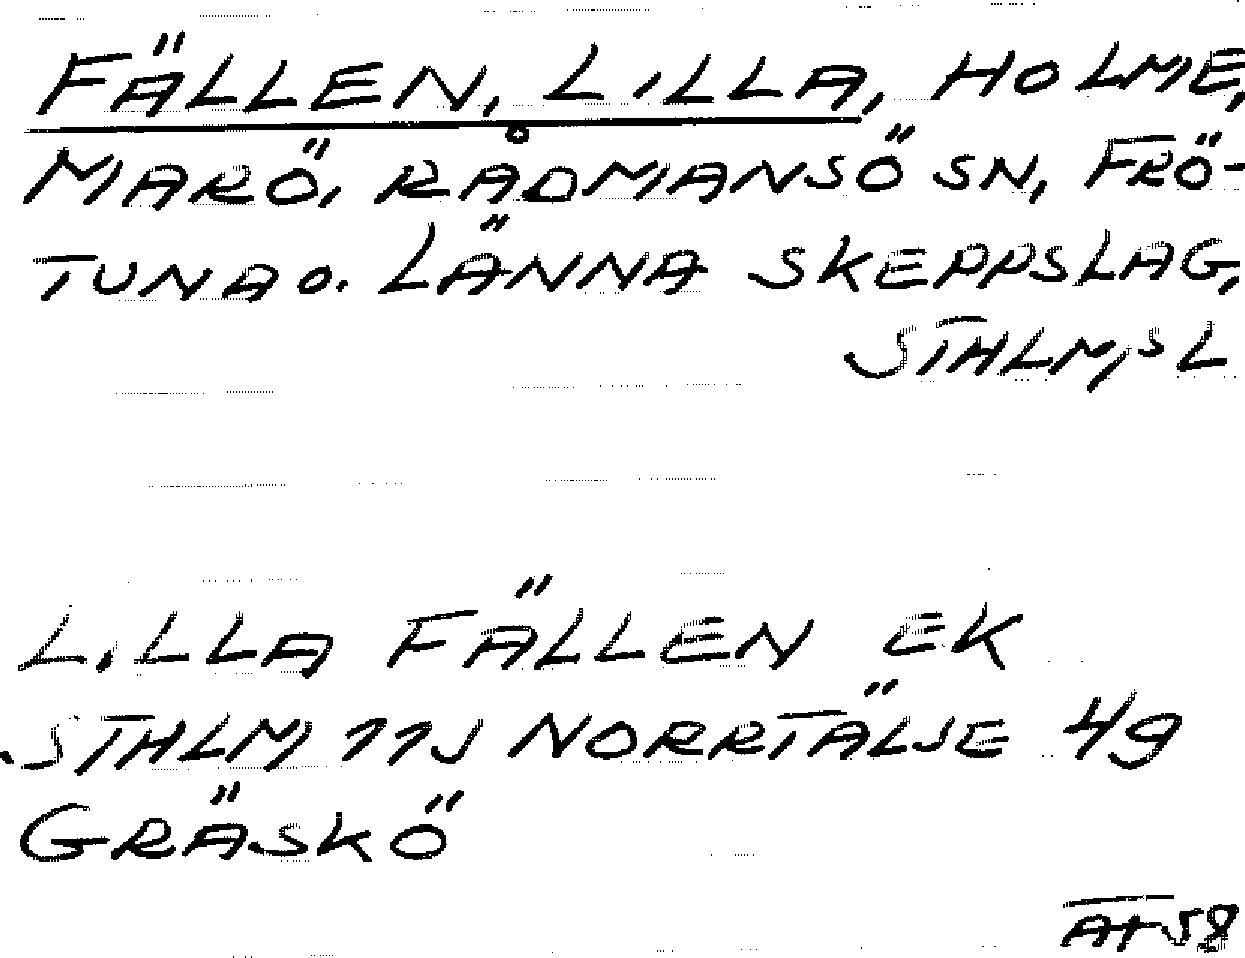 FÄLLEN, LILLA, HOLME,
MARÖ, RÅDMANSÖ SN, FRÖ-
TUNA O. LÄNNA SKEPPSLAG,
STHLM,S L
LILLA FÄLLEN EK
STHLM 11J NORRTÄLJE 4g
GRÄSKÖ
58